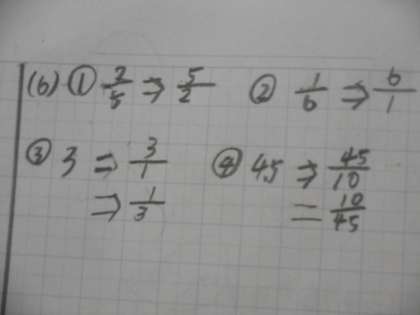 (6) ① 2/5 ⇒ 5/2 ② 1/6 ⇒ 6/1
③ 3 ⇒ 3/1 ④ 45 ⇒ 45/10
⇒ 1/3 = 10/45